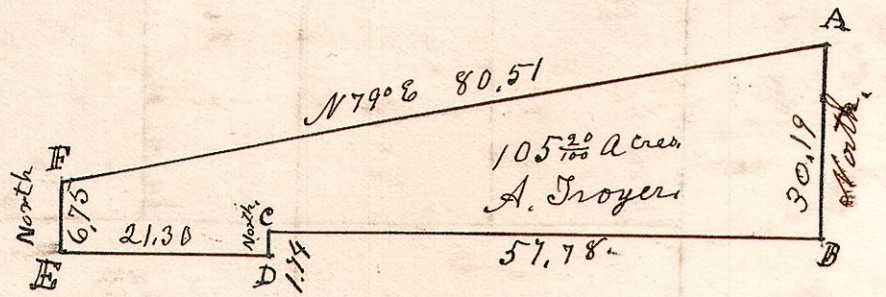 A
N 79° E 80,51
105 20/100 Acres
A. Troyer
30,19
North.
F
North
6,75
21.30
North
C
57,78
B
E
D
1.74